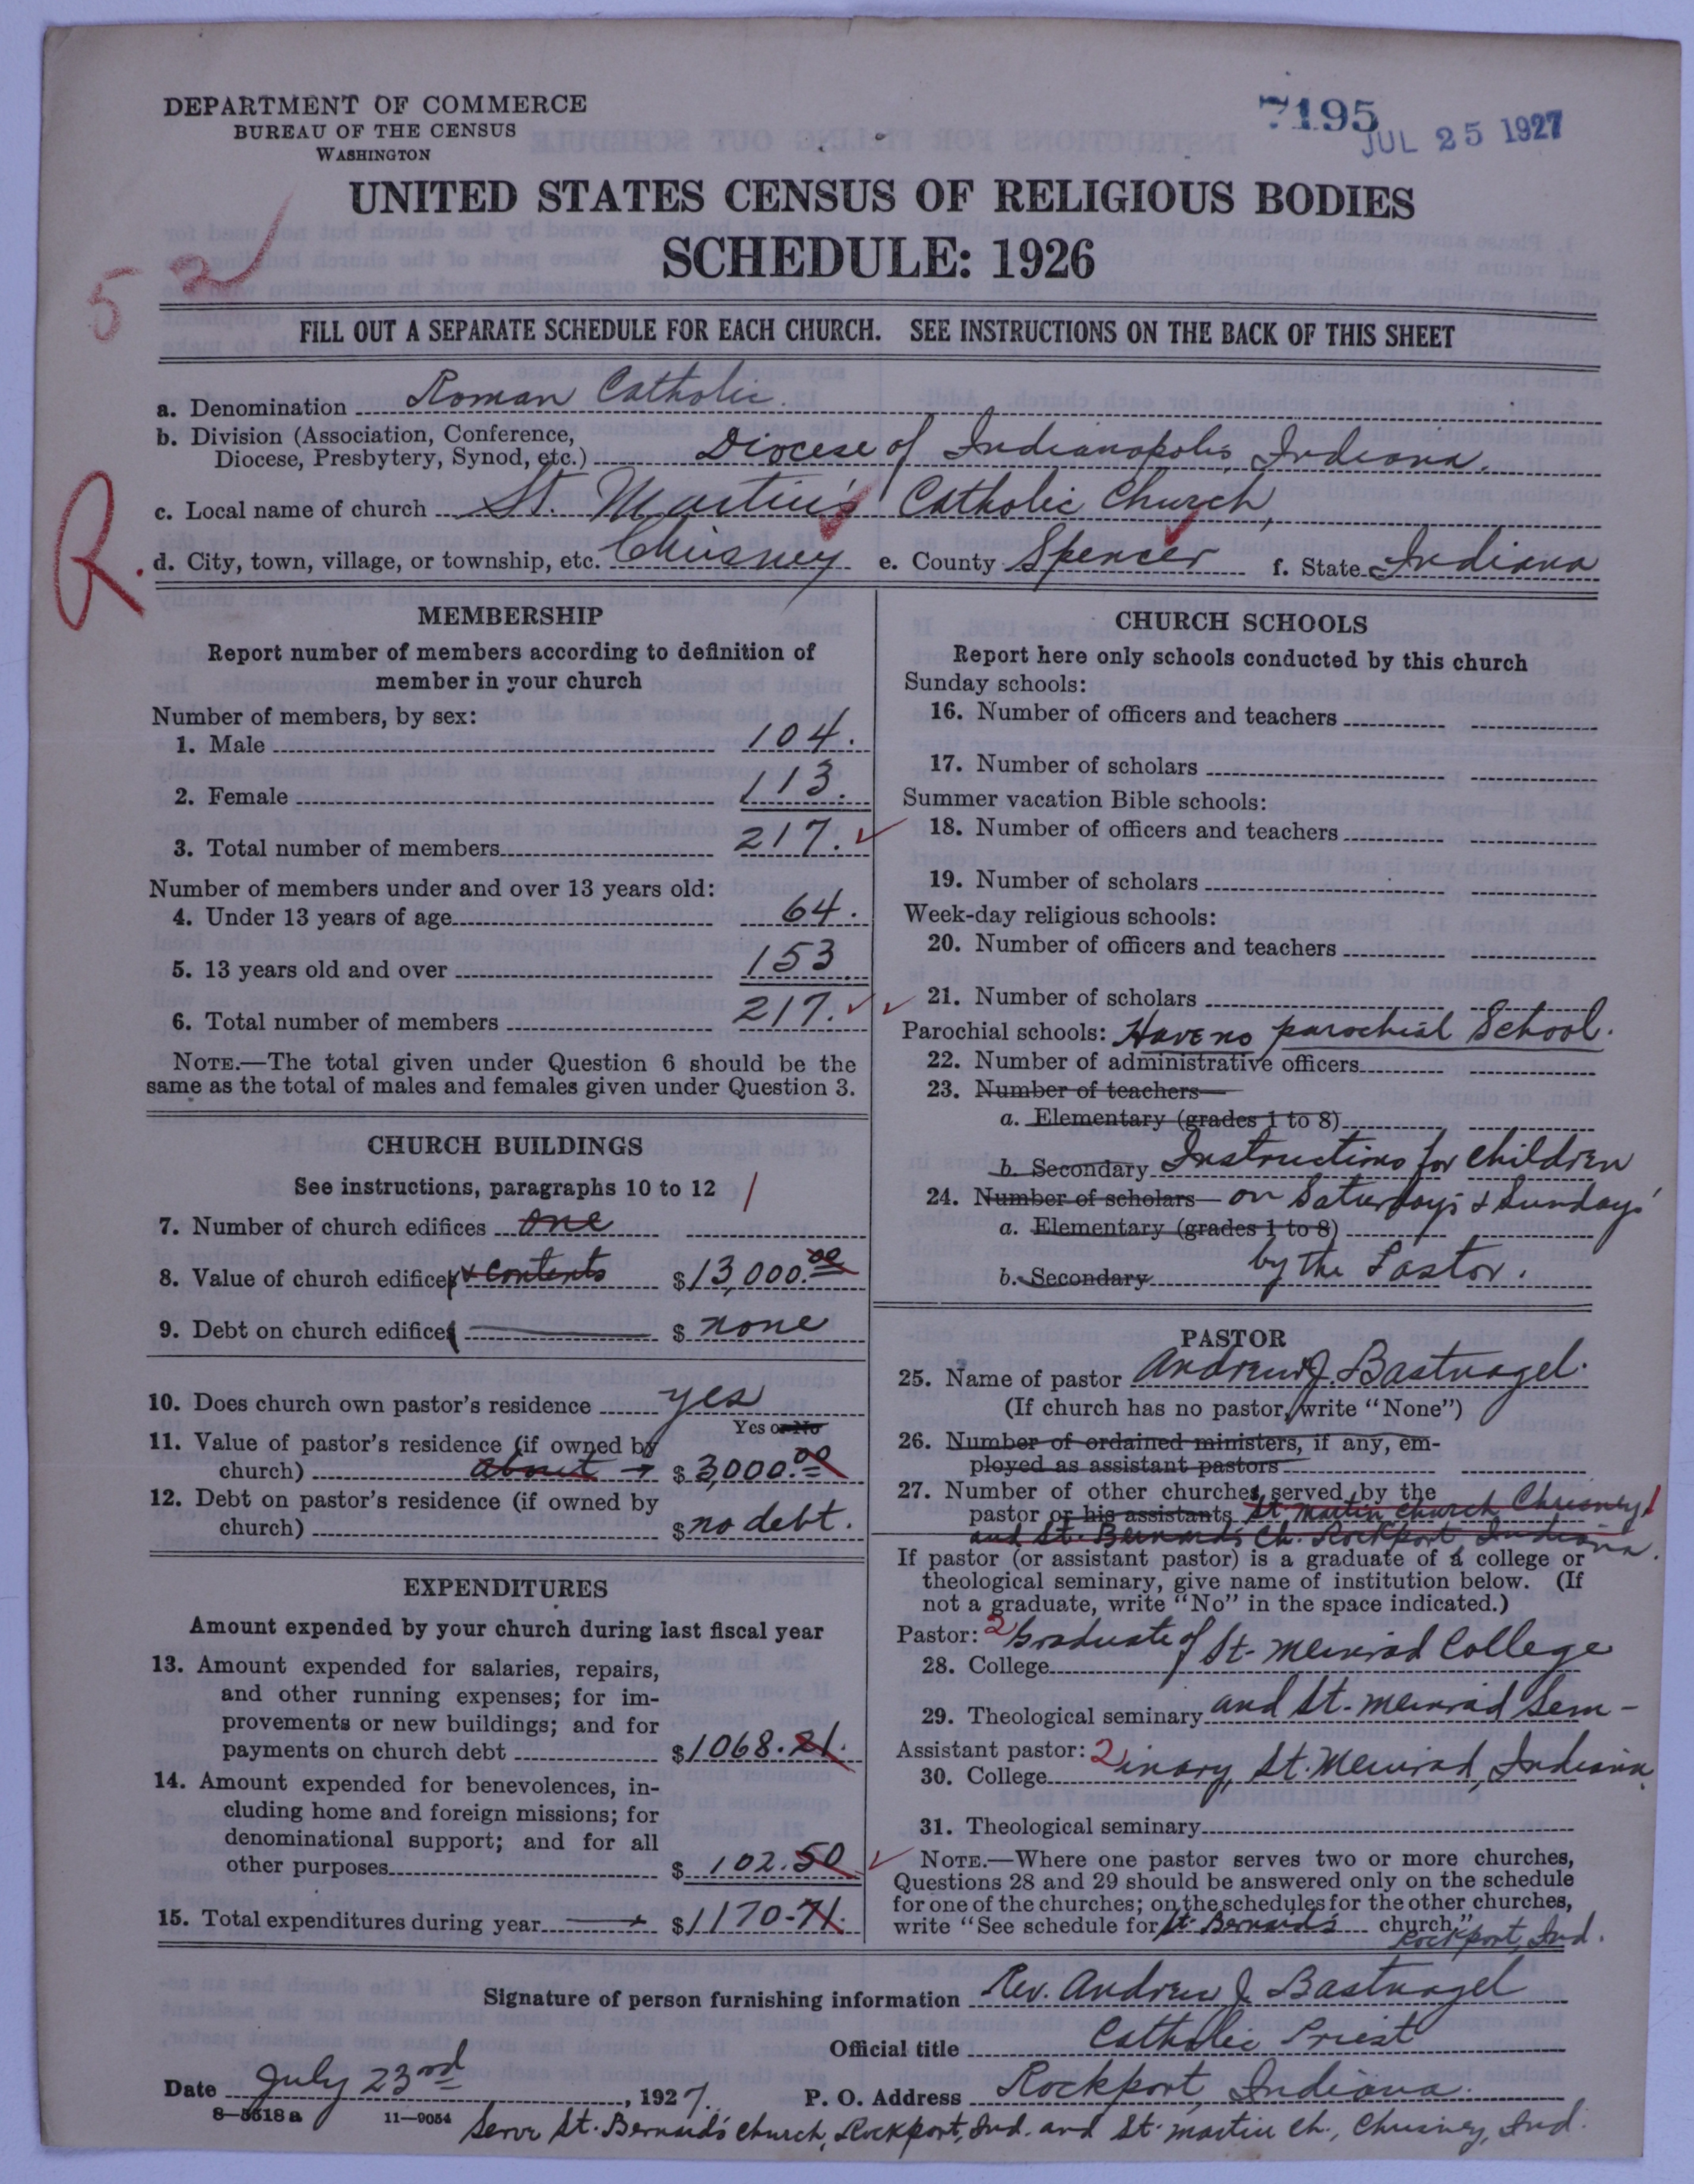 DEPARTMENT OF COMMERCE
BUREAU OF THE CENSUS
WASHINGTON
7195
JUL 25 1927
UNITED STATES CENSUS OF RELIGIOUS BODIES
SCHEDULE: 1926
52
FILL OUT A SEPARATE SCHEDULE FOR EACH CHURCH. SEE INSTRUCTIONS ON THE BACK OF THIS SHEET
a. Denomination Roman Catholic.
b. Division (Association, Conference,
Diocese, Presbytery, Synod, etc.) Diocese of Indianapolis, Indiana.
c. Local name of church St. Martin's Catholic Church,
R. d. City, town, village, or township, etc. Chrisney e. County Spencer f. State Indiana
MEMBERSHIP
Report number of members according to definition of
member in your church
Number of members, by sex:
1. Male 104.
2. Female 113.
3. Total number of members 217.
Number of members under and over 13 years old:
4. Under 13 years of age 64.
5. 13 years old and over 153
6. Total number of members 217.
NOTE.—The total given under Question 6 should be the
same as the total of males and females given under Question 3.
CHURCH BUILDINGS
See instructions, paragraphs 10 to 12
7. Number of church edifices one 1
8. Value of church edifices & contents $13,000.00
9. Debt on church edifices $ none
10. Does church own pastor's residence yes
Yes or No
11. Value of pastor's residence (if owned by
church) about → $3,000.00
12. Debt on pastor's residence (if owned by
church) $ no debt.
EXPENDITURES
Amount expended by your church during last fiscal year
13. Amount expended for salaries, repairs,
and other running expenses; for im-
provements or new buildings; and for
payments on church debt $1068.21.
14. Amount expended for benevolences, in-
cluding home and foreign missions; for
denominational support; and for all
other purposes $ 102.50
15. Total expenditures during year $1170-71.
CHURCH SCHOOLS
Report here only schools conducted by this church
Sunday schools:
16. Number of officers and teachers
17. Number of scholars
Summer vacation Bible schools:
18. Number of officers and teachers
19. Number of scholars
Week-day religious schools:
20. Number of officers and teachers
21. Number of scholars
Parochial schools: Have no parochial School.
22. Number of administrative officers
23. Number of teachers—
a. Elementary (grades 1 to 8)
b. Secondary Instructions for children
24. Number of scholars— on Saturdays & Sundays
a. Elementary (grades 1 to 8)
b. Secondary by the Pastor.
PASTOR
25. Name of pastor Andrew J. Bastnagel.
(If church has no pastor, write "None")
26. Number of ordained ministers, if any, em-
ployed as assistant pastors
27. Number of other churches served by the
pastor or his assistants St. Martin Church Chrisney 1
and St. Bernard's Ch. Rockport, Indiana.
If pastor (or assistant pastor) is a graduate of a college or
theological seminary, give name of institution below. (If
not a graduate, write "No" in the space indicated.)
Pastor: 2 Graduate of St- Meinrad College
28. College
29. Theological seminary and St. Meinrad Sem-
Assistant pastor: 2
30. College inary, St. Meinrad, Indiana
31. Theological seminary
NOTE.—Where one pastor serves two or more churches,
Questions 28 and 29 should be answered only on the schedule
for one of the churches; on the schedules for the other churches,
write "See schedule for St. Bernard's church."
Rockport, Ind.
Signature of person furnishing information Rev. Andrew J. Bastnagel
Official title Catholic Priest
Date July 23rd, 1927. P. O. Address Rockport, Indiana.
8—5518a 11—9054
Serve St. Bernard's Church, Rockport, Ind. and St. Martin Ch., Chrisney, Ind.